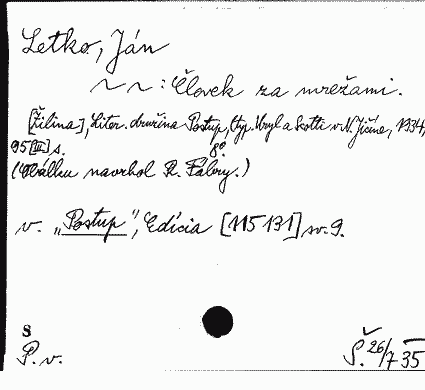 Letko, Ján
~ ~ : Človek za mrežami.
[Žilina], Liter. družina Postup, (typ. Kryl a Scotti v N. Jičíne, 1934,
95 [III] s. 8°.
(Obálku navrhol R. Fábry.)
v. „Postup", Edícia [115 131] sv. 9.
S
P. v. Š. 26/7 35